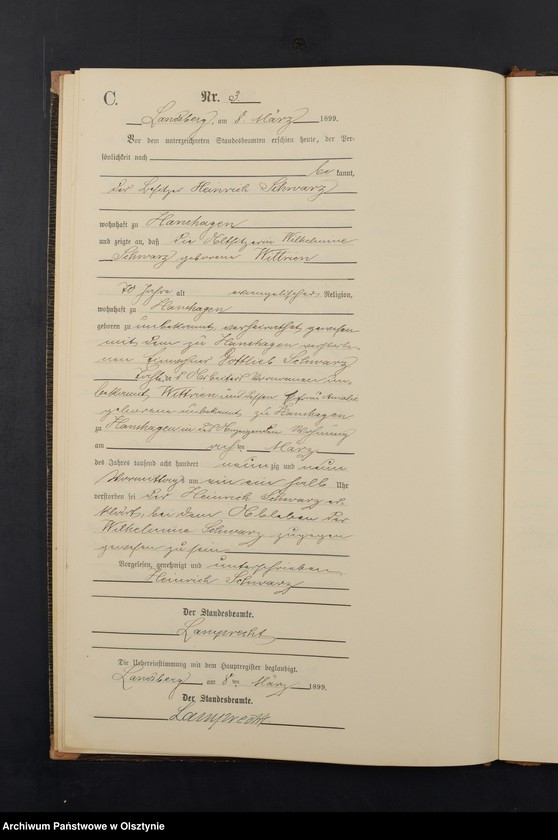 C. Nr. 3.
Landsberg, am 8. März 1899.
Vor dem unterzeichneten Standesbeamten erschien heute, der Per-
sönlichkeit nach
be kannt,
der Besitzer Heinrich Schwarz
wohnhaft zu Hanshagen
und zeigte an, daß die Altsitzerin Wilhelmine
Schwarz geborene Wittrien
70 Jahre alt evangelischer Religion,
wohnhaft zu Hanshagen
geboren zu unbekannt, verheirathet gewesen
mit dem zu Hanshagen verstorbe-
nen Gottlieb Schwarz
Tochter des Arbeiters Vornamen un-
bekannt, Wittrien und dessen Ehefrau
geborene unbekannt zu Hanshagen
zu Hanshagen in des Anzeigenden Wohnung
am ten März
des Jahres tausend acht hundert neun zig und neun
Vormittags um ein ein halb Uhr
verstorben sei Der Heinrich Schwarz er-
klärt, bei dem Ableben der
Wilhelmine Schwarz zugegen
gewesen zu sein
Vorgelesen, genehmigt und unterschrieben
Heinrich Schwarz
Der Standesbeamte.
Lamprecht
Die Uebereinstimmung mit dem Hauptregister beglaubigt.
Landsberg am 8ten März 1899.
Der Standesbeamte.
Lamprecht
Archiwum Państwowe w Olsztynie